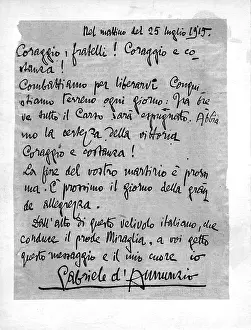 Nel mattino del 25 luglio 1915.
Coraggio, fratelli! Coraggio e co-
stanza!
Combattiamo per liberarvi Conqui-
stiamo terreno ogni giorno: Fra bre-
ve tutto il Carso sarà espugnato. Abbia-
mo la certezza della vittoria
Coraggio e costanza!
La fine del vostro martirio è prossi-
ma. È prossimo il giorno della gran-
de allegrezza.
Dall'alto di questo velivolo italiano, che
conduce il prode Miraglia, a voi getto
questo messaggio e il mio cuore io
Gabriele d'Annunzio